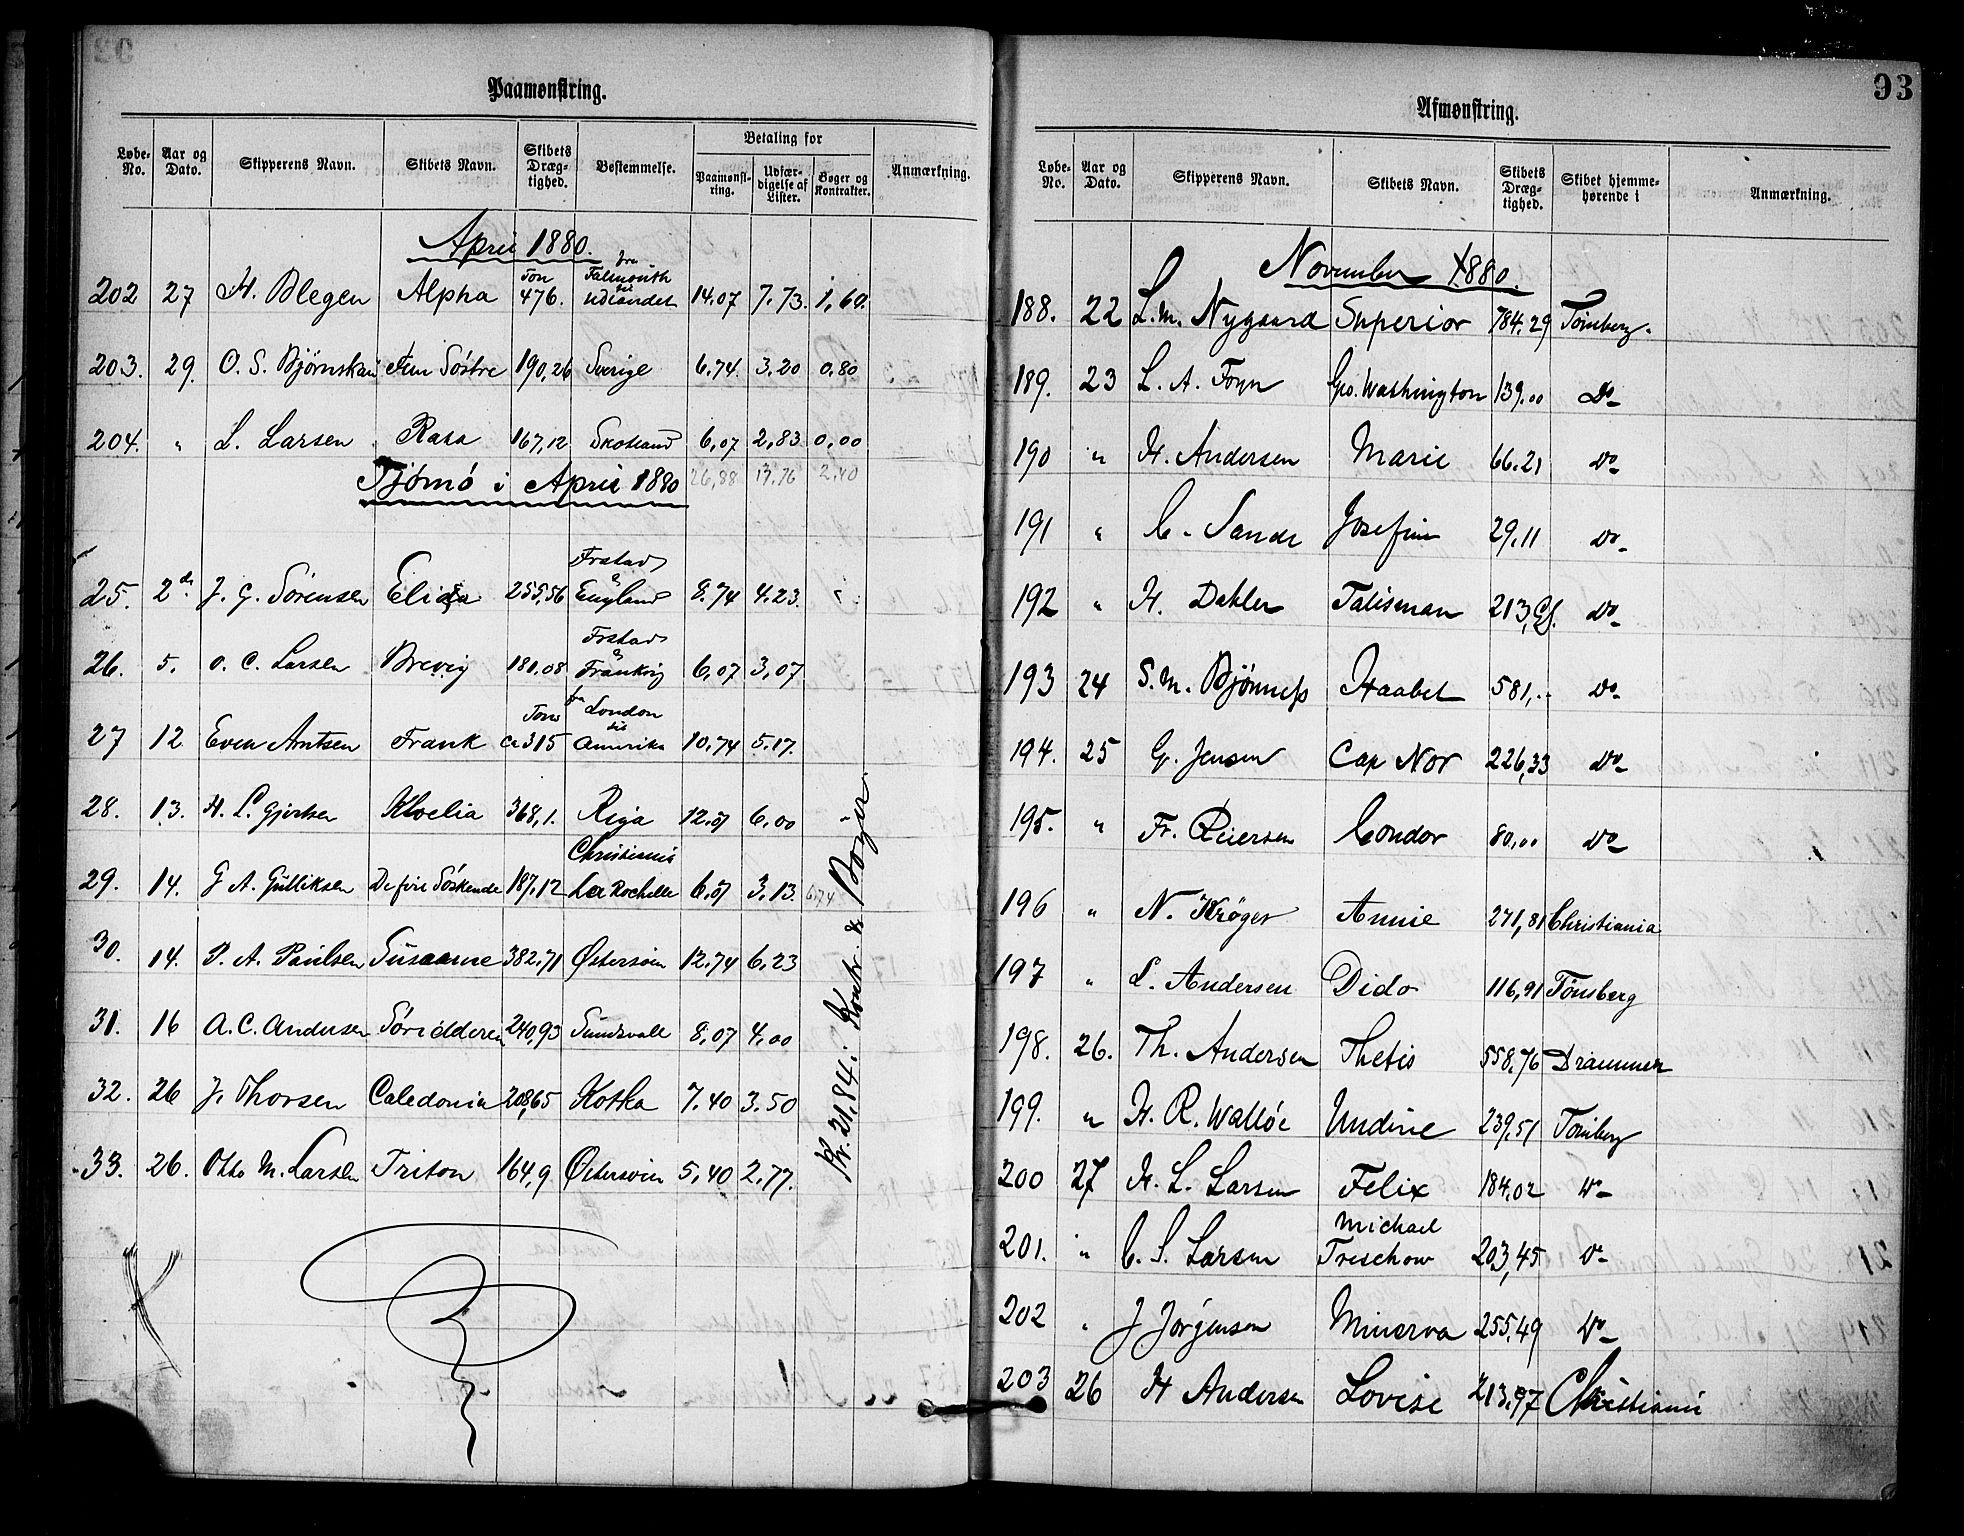 Paamønstring.
Løbe-No. Aar og Dato. Skipperens Navn. Skibets Navn. Skibets Dræg-tighed. Bestemmelse. Betaling for Paamønst-ring. Udfær-digelse af Lister. Bøger og Kontrakter. Anmærkning.
April 1880.
202 27 H. Blegen Alpha Ton 476. fra Falmouth til Udlandet 14.07 7.73. 1,60.
203. 29. O. S. Bjørnskau Fem Söstre 190,26 Sverige 6.74. 3.20 0,80
204. " L. Larsen Rasa 167,12 Skotland 6,07 2,83 0,00
26,88 13.76 2.40
Tjømø i April 1880
25. 2d. J. G. Sörensen Elida 255,56 Frstad a England 8.74 4.23. "
26. 5. O. C. Larsen Brevig 181,08 Frstad a Frankrig 6,07 3,07
27 12 Even Arntsen Frank Ca Tons 315 fra London til Amerika 10,74 5.17.
28. 13. H. L. Gjertsen Kloelia 368,1. Riga 12.07 6,00 "
29. 14. G A. Gulliksen De fire Söskende 187,12 Christiania La Rochelle 6,07 3,13. 6.74
30. 14. P. A. Paulsen Susanne 382,71 Østersøen 12,74 6,23
31. 16 A. C. Andersen Söridderen 240,93 Sundsvall 8,07 4,00
32. 26 J. Thorsen Caledonia 208,65 Kotka 7.40 3.50
33. 26. Otto M. Larsen Triton 164,9 Østersøen 5,40 2.77.
Kr. 21.84. Kontr. & Bøger
93
Afmønstring.
Løbe-No. Aar og Dato. Skipperens Navn. Skibets Navn. Skibets Dræg-tighed. Skibet hjemme-hørende i Anmærkning.
November 1880.
188. 22 L. M. Nygaard Superior 784.29 Tønsberg.
189. 23 L. A. Foyn Geo. Washington 139.00 Do
190 " H. Andersen Marie 66.21 Do
191 " C. Sande Josefine 29,11 Do
192 " H. Dahler Talisman 213, Do
193 24 S. M. Bjönness Haabet 581,.. Do
194. 25 G. Jensen Cap Nor 226,33 Do
195. " Fr. Reiersen Condor 80,00 Do
196 " N. Krøger Annie 271,81 Christiania
197 " L. Andersen Dido 116,91 Tønsberg
198. 26. Th. Andersen Thetis 558,76 Drammen
199. " H. R. Walløe Undine 239,51 Tønsberg
200 27 H. L. Larsen Felix 184,02 Do
201. " C. S. Larsen Michael Treschow 203,45 Do
202 " J Jørgensen Minerva 255,49 Do
203 26 H Andersen Lovise 213,97 Christiania